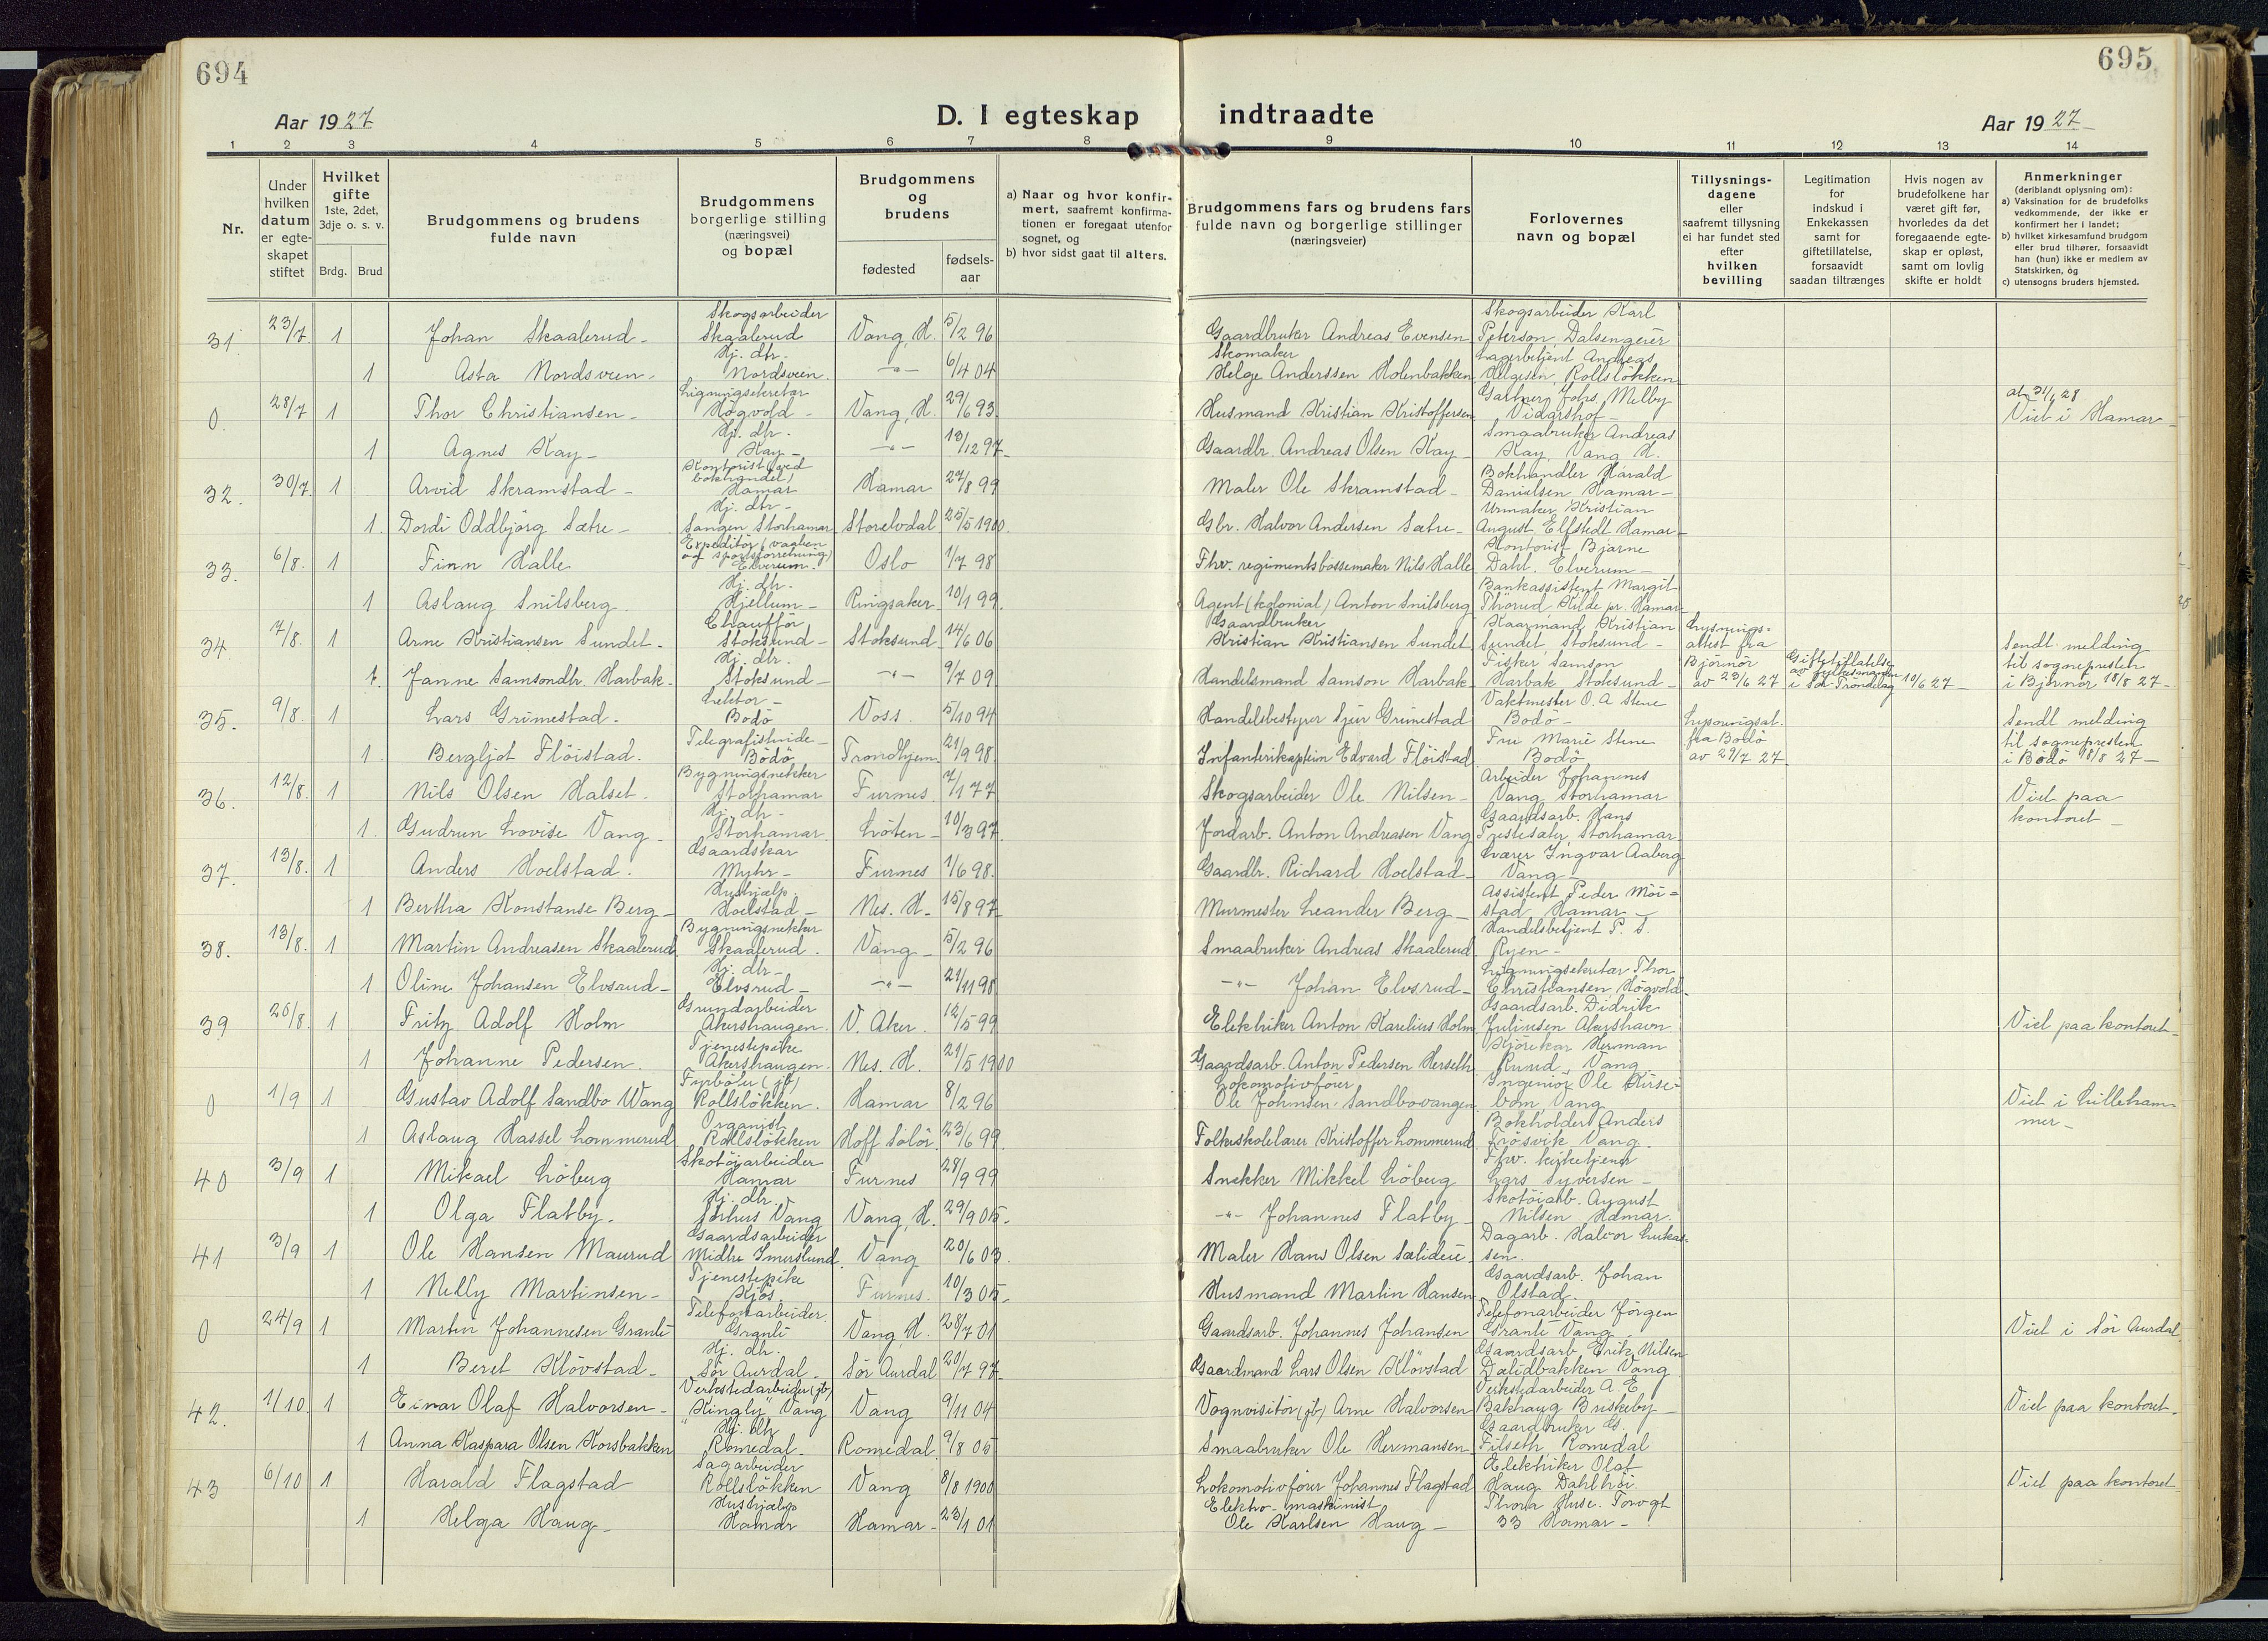 694
695
Aar 1927
D. I egteskap indtraadte
Aar 1927
1 2 3 4 5 6 7 8 9 10 11 12 13 14
Nr.
Under hvilken datum er egteskapet stiftet
Hvilket gifte 1ste, 2det, 3dje o. s. v.
Brdg. Brud
Brudgommens og brudens fulde navn
Brudgommens borgerlige stilling (næringsvei) og bopæl
Brudgommens og brudens
fødested
fødsels-aar
a) Naar og hvor konfirmert, saafremt konfirmationen er foregaat utenfor sognet, og
b) hvor sidst gaat til alters.
Brudgommens fars og brudens fars fulde navn og borgerlige stillinger (næringsveier)
Forlovernes navn og bopæl
Tillysningsdagene eller saafremt tillysning ei har fundet sted efter hvilken bevilling
Legitimation for indskud i Enkekassen samt for giftetillatelse, forsaavidt saadan tiltrænges
Hvis nogen av brudefolkene har været gift før, hvorledes da det foregaaende egteskap er opløst, samt om lovlig skifte er holdt
Anmerkninger (deriblandt oplysning om):
a) Vaksination for de brudefolks vedkommende, der ikke er konfirmert her i landet;
b) hvilket kirkesamfund brudgom eller brud tilhører, forsaavidt han (hun) ikke er medlem av Statskirken, og
c) utensogns bruders hjemsted.
31. 23/7. 1 Johan Skaalerud - Skogsarbeider Skaalerud Vang, H. 5/2 96 Gaardbruker Andreas Evensen Skogsarbeider Karl Peterson, Dalsengeier
1 Asta Nordsveen - Hj. dtr. Nordsveen. -"- 6/4 04 Skomaker Helge Anderssen Holenbakken Lagerbetjent Andreas Helgesen, Rollsløkken
0. 28/7 1 Thor Christiansen - Ligningsekretær Høgvold - Vang, H. 29/6 93 Husmand Kristian Kristoffersen Gartner Johs. Melby Vidarshof - at. 31/1 28 Viet i Hamar -
1 Agnes Kay - Hj. dtr. Kay - -"- 13/12 97 Gaardbr. Andreas Olsen Kay - Smaabruker Andreas Kay, Vang H.
32. 30/7. 1 Arvid Skramstad - Kontorist (ved bokhandel) Hamar Hamar 27/8 99 Maler Ole Skramstad - Bokhandler Harald Danielsen Hamar -
1. Dordi Oddbjörg Sætre - Hj. dtr - Sangen Storhamar Storelvdal 25/5 1900. Gbr. Halvor Andersen Sætre - Urmaker Kristian August Elfstedt Hamar -
33. 6/8. 1 Finn Halle Expeditör (vaaben og sportsforretning) Elverum. Oslo 1/7 98 Fhv. regimentsbössemaker Nils Halle Kontorist Bjarne Dahl. Elverum -
1 Aslaug Snilsberg. Hj. dtr. Hjellum - Ringsaker 10/1 99. Agent (kolonial) Anton Snilsberg Bankassistent Margit Thörud Kilde pr. Hamar -
34. 7/8. 1 Arne Kristiansen Sundet - Chaufför Stoksund - Stoksund 14/6 06 Gaardbruker Kristian Kristiansen Sundet Kaarmand Kristian Sundet, Stoksund - Lysningsattest fra Björnör av 23/6 27 Giftetillatelse av fylkesmanden i Sör Tröndelag 10/6 27 - Sendt melding til sognepresten i Björnör 18/8 27 -
1. Janne Samsondtr. Harbak - Hj. dtr. Stoksund - -"- 9/7 09 Handelsmand Samson Harbak Fisker Samson Harbak Stoksund -
35. 9/8. 1 Lars Grimestad - Lektor - Bodö Voss. 5/10 94 Handelsbestyrer Sjur Grimestad Vaktmester O. A Stene Bodö - Lysningsat. fra Bodö av 29/7 27 Sendt melding til sognepresten i Bodö 18/8 27 -
1. Bergljot Flöistad. Telegrafistinde - Bodö Trondhjem 21/9 98 Infanterikaptein Edvard Flöistad Fru Marie Stene Bodö
36. 12/8. 1 Nils Olsen Halset. Bygningssnekker Storhamar Furnes. 7/1 77 Skogsarbeider Ole Nilsen - Arbeider Johannes Vang Storhamar Viet paa kontoret -
1. Gudrun Lovise Vang - Hj. dtr - Storhamar. Löten - 10/3 97. Jordarb. Anton Andreasen Vang Gaardsarb. Hans Prestesæter Storhamar
37. 13/8. 1 Anders Hoelstad. Gaardskar Myhr - Furnes 1/6 98. Gaardbr. Richard Hoelstad - Sværer Ingvar Aaberg Vang -
1 Bertha Konstanse Berg - Hushjælp. Hoelstad - Nes. H. 15/8 97 Murmester Leander Berg - Assistent Peder Möistad Hamar -
38. 13/8. 1 Martin Andreasen Skaalerud Bygningssnekker Skaalerud. Vang - 5/2 96 Smaabruker Andreas Skaalerud Handelsbetjent P. S. Ryen -
1 Oline Johansen Elvsrud - Hj. dtr - Elvsrud - -"- 21/11 98 -"- Johan Elvsrud - Ligningsekretær Thor Christiansen Høgvold -
39 26/8. 1 Fritz Adolf Holm Grundarbeider Akershaugen. V. Aker. 12/5 99 Elektriker Anton Karelius Holm Gaardsarb. Didrik Juliusen Akershaven Viet paa kontoret -
1 Johanne Pedersen. Tjenestepike Akershaugen. Nes. H. 21/5 1900 Gaardsarb. Anton Pedersen Herseth Kjörekar Herman Ruud, Vang
0 1/9 1 Gustav Adolf Sandbo Wang Fyrböter (jb) Rollsløkken. Hamar 8/2 96 Lokomotivförer Ole Johnsen Sandbovangen Ingeniör Ole Kirsebom, Vang Viet i Lillehammer -
1 Aslaug Hassel Lommerud Organist Rollsløkken Hoff Solör 23/6 99. Folkeskolelærer Kristoffer Lommerud Bokholder Anders Frösvik Vang -
40 3/9 1 Mikael Löberg Skotöjarbeider Hamar Furnes 28/9 99 Snekker Mikkel Löberg Fhv. kirketjener Lars Syversen -
1 Olga Flatby. Hj. dtr. Jorhus Vang Vang, H. 29/9 05 - -"- Johannes Flatby - Skotöiarb. August Nilsen Hamar.
41 3/9 1 Ole Hansen Maurud Gaardsarbeider Midtre Imerslund. Vang 20/6 03. Maler Hans Olsen Sælideie Dagarb. Halvor Lukassen.
1 Nelly Martinsen - Tjenestepike Kjos Furnes. 10/3 05 - Husmand Martin Hansen Gaardsarb. Johan Olstad.
0 24/9 1 Martin Johannesen Granli Telefonarbeider. Granli Vang, H. 28/7 01 Gaardsarb. Johannes Johansen Telefonarbeider Jörgen Granli Vang. Viet i Sör Aurdal
1 Beret Klövstad - Hj. dtr. Sör Aurdal - Sör Aurdal 20/7 97 Gaardmand Lars Olsen Klövstad Gaardsarb Erik Nilsen Dælidbakken Vang
42. 1/10 1 Einar Olaf Halvorsen - Verkstedarbeider (jb) "Kingly" Vang Vang 9/11 04 Vognvisitör (jb) Arne Halvorsen Verkstedarbeider A. E Bakhaug Buskeby - Viet paa kontoret -
1 Anna Kaspara Olsen Korsbakken Hj. dtr Romedal - Romedal 9/8 05 Smaabruker Ole Hermansen Gaardbruker G. Filseth Romedal
43 6/10 1 Harald Flagstad Sagarbeider Rollsløkken Vang 8/8 1900 Lokomotivförer Johannes Flagstad Elektriker Olaf Haug Dahlhöi Viet paa kontoret -
1 Helga Haug - Hushjælp Hamar Hamar - 23/1 01 Elektro-maskinist Ole Karlsen Haug - Thora Huse. Torvgt 33 Hamar -